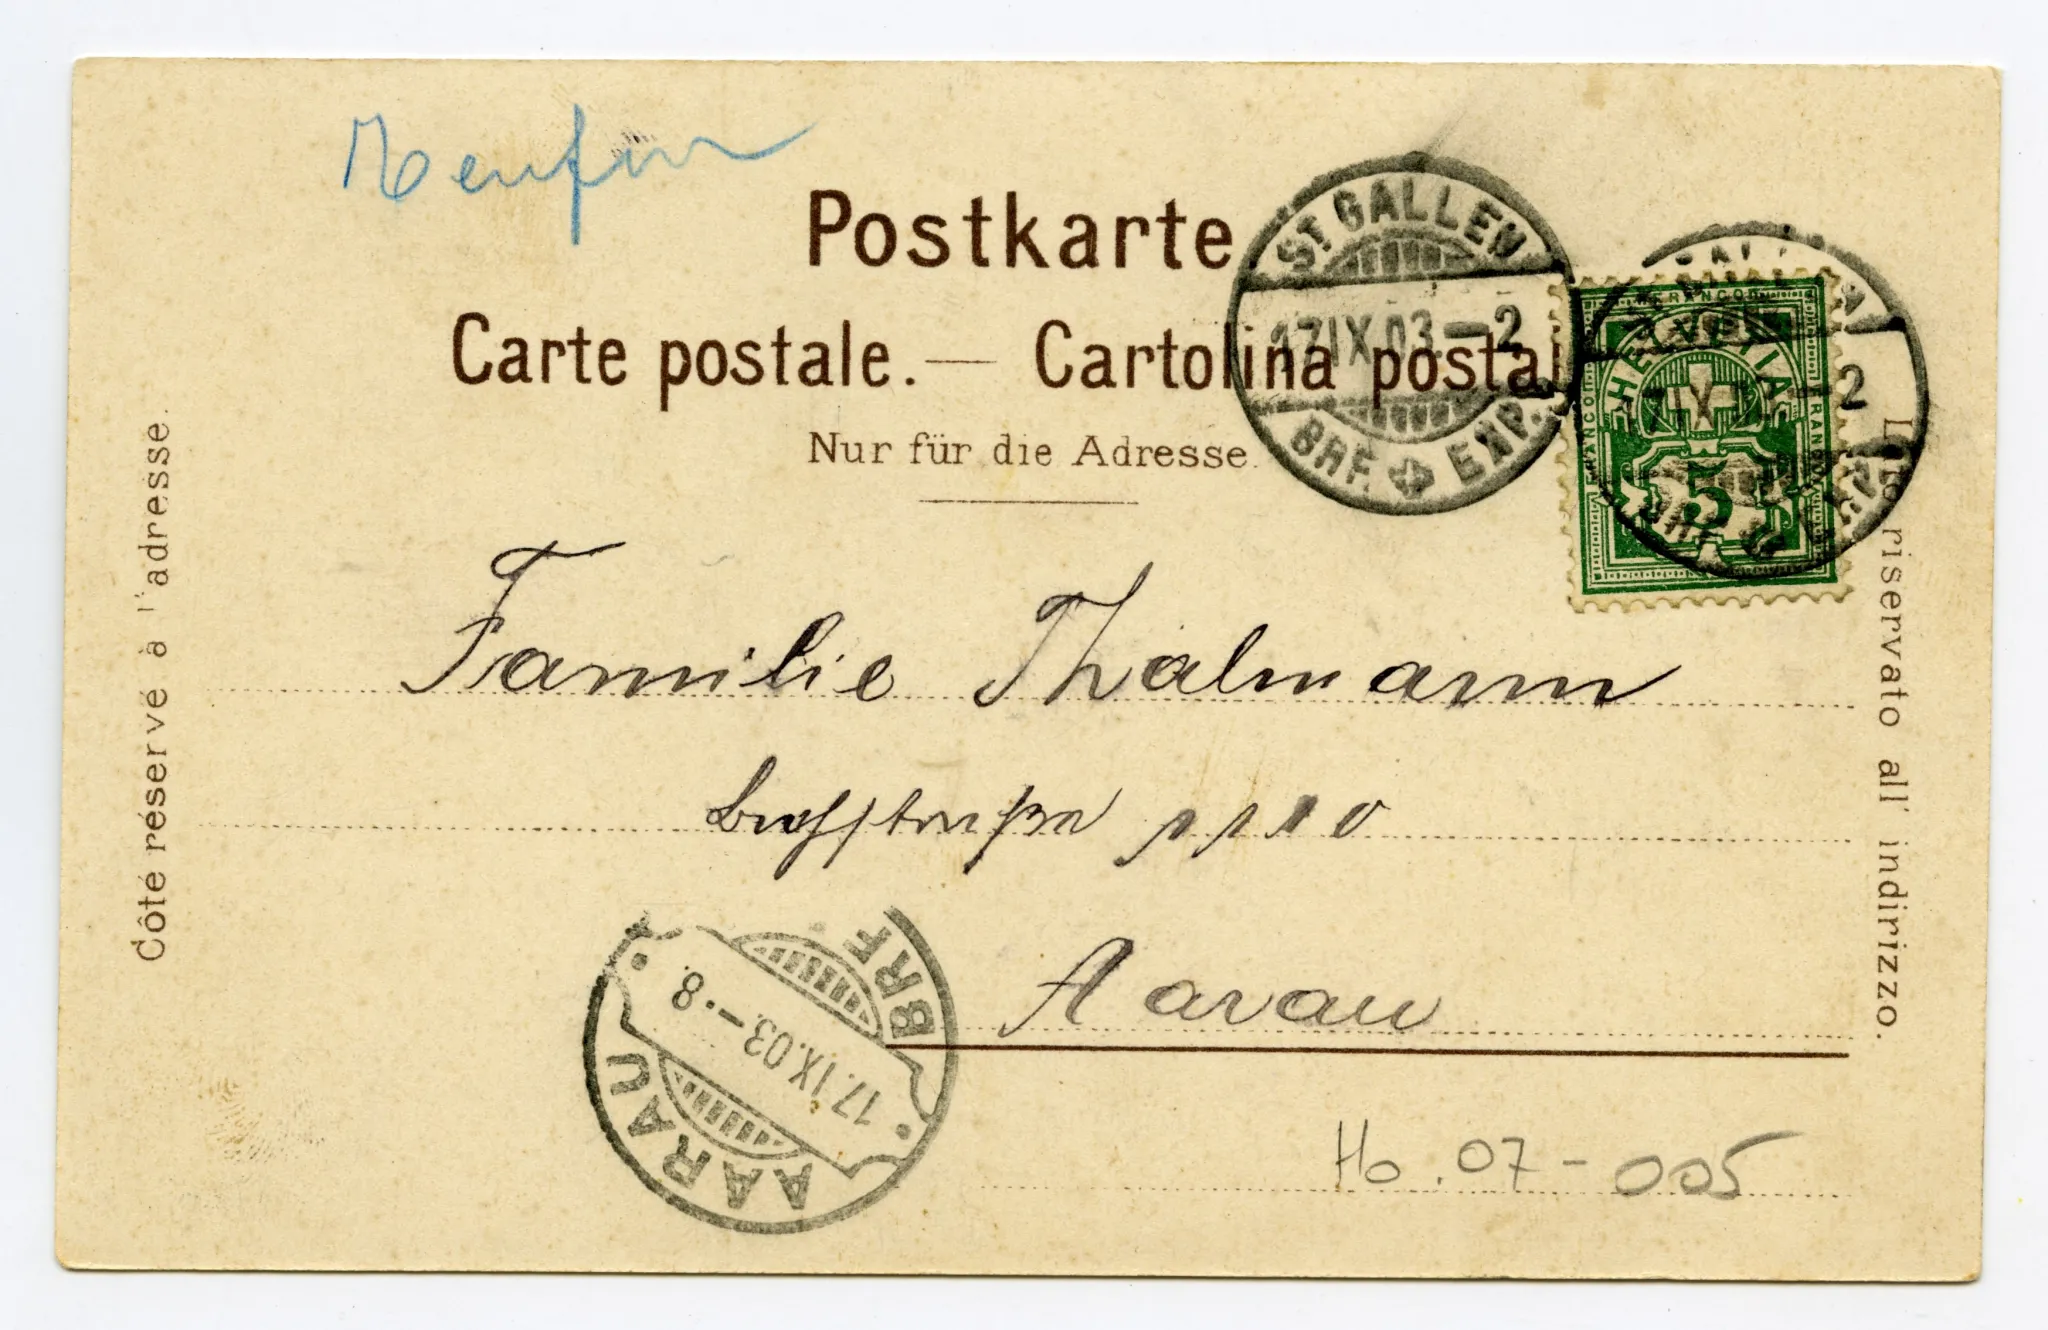 Postkarte
Carte postale. — Cartolina postal
Nur für die Adresse.
ST. GALLEN
17 IX 03 – 2
BRF. EXP.
FRANCO
HELVETIA
FRANCO
FRANCO
5
2
Familie Thalmann
Aarau
AARAU
17. IX. 03. – 8.
BRF
Ho. 07 - 005
Côté réservé à l'adresse.
Lato riservato all' indirizzo.